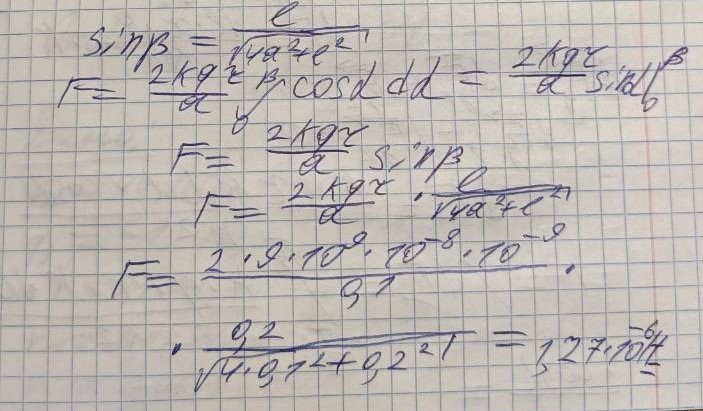 sinβ = e/√(4a²+e²)
F = 2kqτ/a ∫₀^β cosα dα = 2kqτ/a sinα|₀^β
F = 2kqτ/a sinβ
F = 2kqτ/a · e/√(4a²+e²)
F = 2·9·10⁹·10⁻⁸·10⁻⁹/0,1 ·
· 0,2/√(4·0,1²+0,2²) = 1,27·10⁻⁶ Н